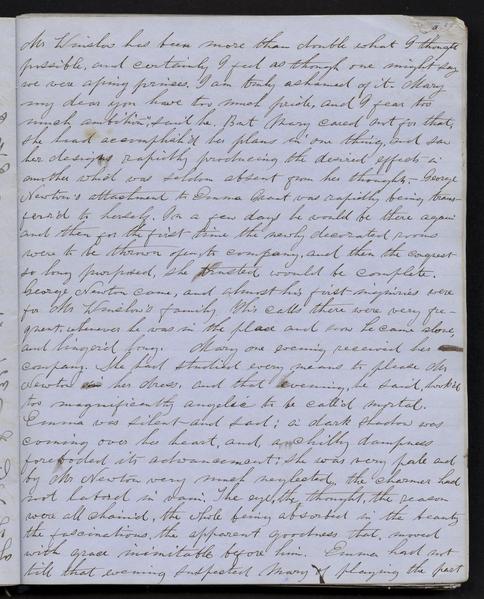 Mr Winslow has been more than double what I thought
possible, and certainly I feel as though one might say
we were aping princes. I am truly ashamed of it. Mary
my dear you have too much pride, and I fear too
much ambition", said he. But Mary cared not for that,
she had accomplish'd her plans in one thing, and saw
her designs rapidly producing the desired effects in
another which was seldom absent from her thoughts,— George
Newton's attachment to Emma Grant was rapidly being trans-
ferr'd to herself. In a few days he would be there again
and then for the first time the newly decorated rooms
were to be thrown open to company, and then the conquest
so long purposed, she trusted would be complete.
George Newton came, and almost his first inquiries were
for Mr Winslow's family. His calls there were very fre-
quent, whenever he was in the place and now he came alone,
and linger'd long. Mary one evening received her
company. She had studied every means to please Mr
Newton in her dress, and that evening, he said, look'd
too magnificently angelic to be call'd mortal.
Emma was silent and sad; a dark shadow was
coming over her heart, and a chilly dampness
foreboded its advancement; she was very pale and
by Mr Newton very much neglected, the charmer had
not labor'd in vain. The eye, the thought, the reason
were all chain'd, the whole being absorbed in the beauty
the fascinations, the apparent goodness that moved
with grace inimitable before him. Emma had not
till that evening suspected Mary of playing the part